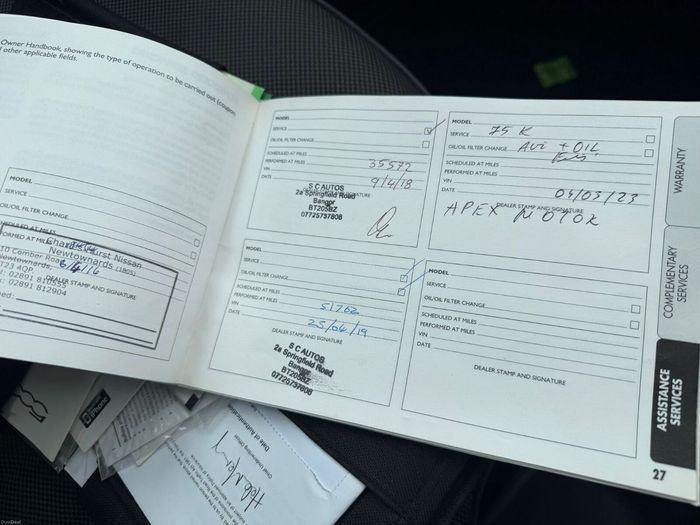 Owner Handbook, showing the type of operation to be carried out (coupon
other applicable fields.
MODEL
SERVICE
OIL/OIL FILTER CHANGE
SCHEDULED AT MILES
FORMED AT MILES
Charles Hurst Nissan
Newtownards (1805)
10 Comber Road
Newtownards,
6/4/16
T23 4QP
DEALER STAMP AND SIGNATURE
: 02891 810555
: 02891 812904
ned:
MODEL
SERVICE
OIL/OIL FILTER CHANGE
SCHEDULED AT MILES
PERFORMED AT MILES 35572
VIN
DATE 9/4/18
S C AUTOS
2a Springfield Road
Bangor
BT205BZ
07725737808
MODEL
SERVICE
OIL/OIL FILTER CHANGE
SCHEDULED AT MILES
PERFORMED AT MILES
VIN 51762
DATE 25/04/19
DEALER STAMP AND SIGNATURE
S C AUTOS
2a Springfield Road
Bangor
BT205BZ
07725737808
MODEL
SERVICE 75K
OIL/OIL FILTER CHANGE
SCHEDULED AT MILES
PERFORMED AT MILES
VIN
DATE 05/03/23
DEALER STAMP AND SIGNATURE
APEX MOTOR
MODEL
SERVICE
OIL/OIL FILTER CHANGE
SCHEDULED AT MILES
PERFORMED AT MILES
VIN
DATE
DEALER STAMP AND SIGNATURE
WARRANTY
COMPLEMENTARY
SERVICES
ASSISTANCE
SERVICES
27
iPhone
Chief Underwriting Officer
Date of Authentication